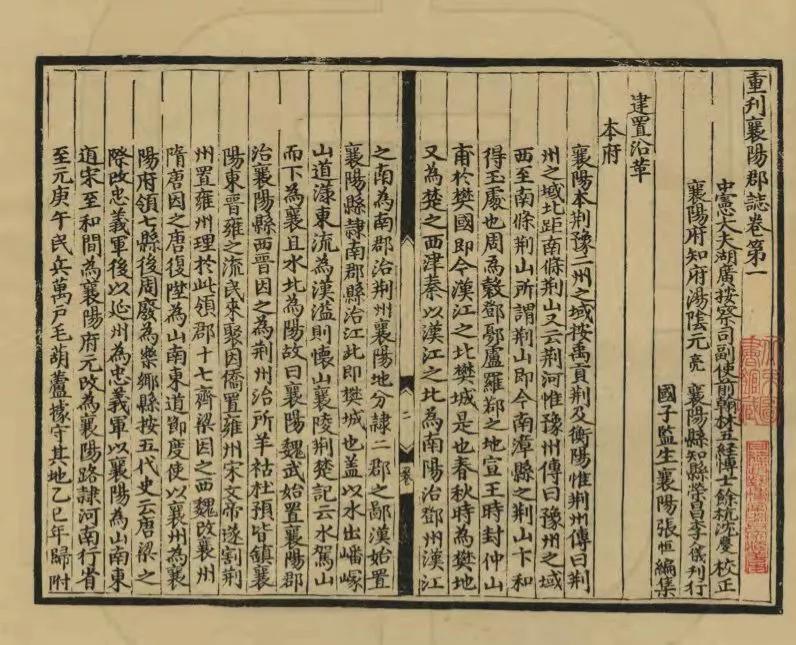 重刋襄陽郡誌卷第一
中憲大夫湖廣按察司副使前翰林五經博士餘杭沈慶校正
襄陽府知府湯陰元亮 襄陽縣知縣榮昌李人儀刋行
國子監生襄陽張恒編集
建置沿革
本府
襄陽本荆豫二州之域按禹貢荆及衡陽惟荆州傳曰荆
州之域北距南條荆山又云荆河惟豫州傳曰豫州之域
西至南條荆山所謂荆山即今南漳縣之荆山卞和
得玉處也周為榖鄧鄾盧羅鄀之地宣王時封仲山
甫於樊國即今漢江之北樊城是也春秋時為樊地
又為楚之西津秦以漢江之北為南陽治鄧州漢江
之南為南郡治荆州襄陽地分隷二郡之鄙漢始置
襄陽縣隷南郡縣治江此即樊城也盖以水出嶓冢
山道漾東流為漢溢則懷山襄陵荆楚記云水駕山
而下為襄且水北為陽故曰襄陽魏武始置襄陽郡
治襄陽縣西晋因之為荆州治所羊祜杜預皆鎮襄
陽東晋雍之流民來聚因僑置雍州宋文帝遂割荆
州置雍州理於此領郡十七齊梁因之西魏改襄州
隋唐因之唐復陞為山南東道節度使以襄州為襄
陽府領七縣後周廢為樂鄉縣按五代史云唐梁之
際改忠義軍後以延州為忠義軍以襄陽為山南東
道宋至和間為襄陽府元改為襄陽路隷河南行省
至元庚午民兵萬戸毛葫蘆據守其地乙巳年歸附
二